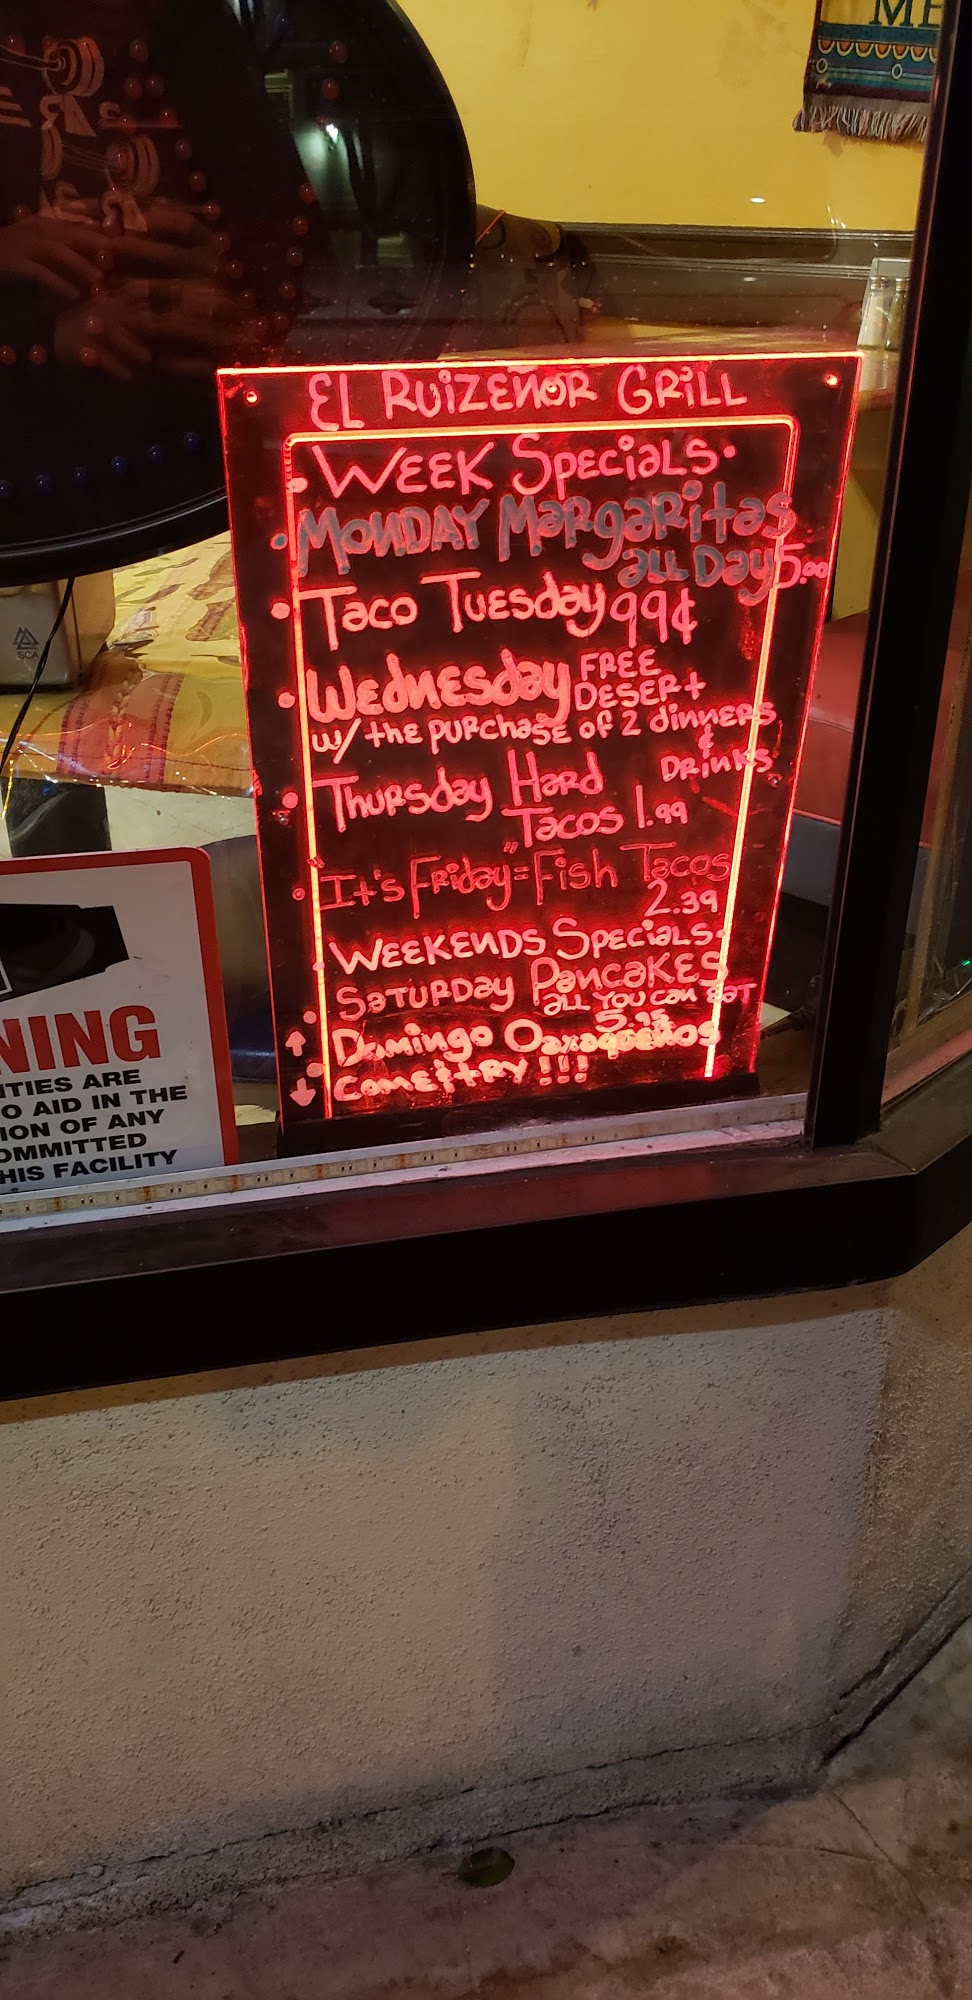 ME
EL RUIZEÑOR GRILL
WEEK SPECIALS.
MONDAY MARGARITAS
ALL DAY 5.00
TACO TUESDAY 99¢
WEDNESDAY FREE
DESERT
W/ THE PURCHASE OF 2 DINNERS
& DRINKS
THURSDAY HARD
TACOS 1.99
IT'S FRIDAY"=FISH TACOS
2.39
WEEKENDS SPECIALS.
SATURDAY PANCAKES
ALL YOU CAN EAT
5.95
DOMINGO OAXAQUEÑOS
COME & TRY !!!
SCA
NING
ITIES ARE
O AID IN THE
ION OF ANY
OMMITTED
HIS FACILITY